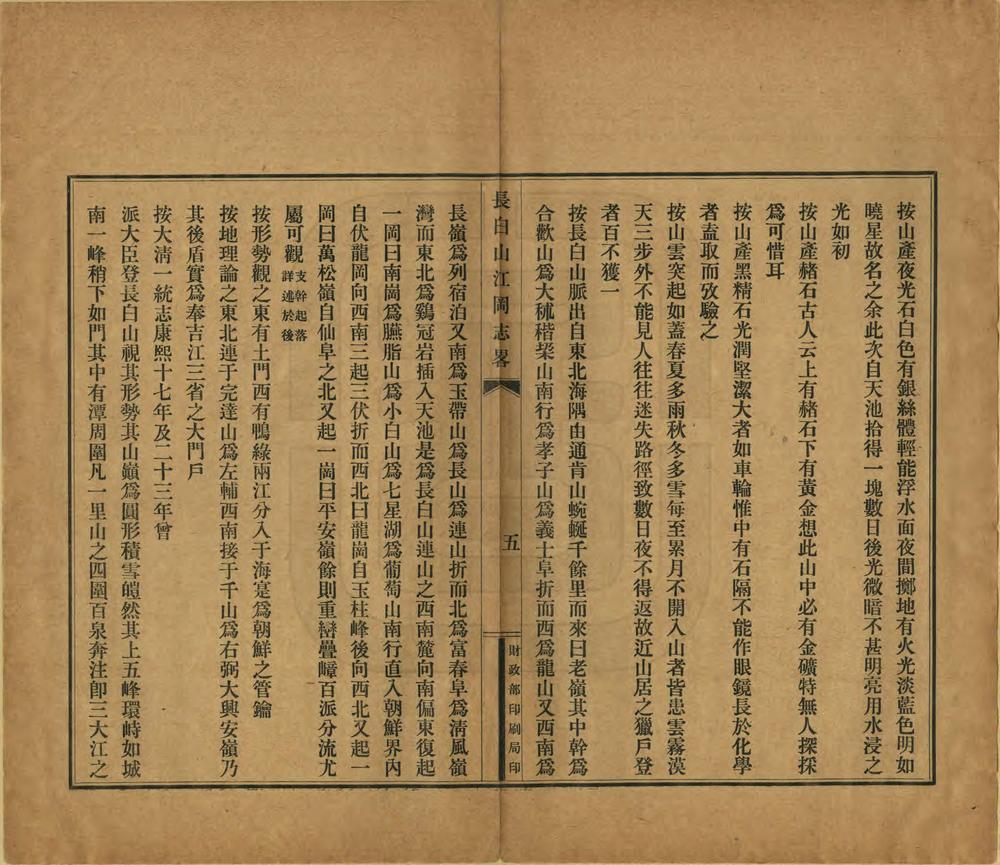 按山產夜光石白色有銀絲體輕能浮水面夜間擲地有火光淡藍色明如
曉星故名之余此次自天池拾得一塊數日後光微暗不甚明亮用水浸之
光如初
按山產赭石古人云上有赭石下有黃金想此山中必有金礦特無人探採
爲可惜耳
按山產黑精石光潤堅潔大者如車輪惟中有石隔不能作眼鏡長於化學
者盍取而攷驗之
按山雲突起如蓋春夏多雨秋冬多雪每至累月不開入山者皆患雲霧漠
天三步外不能見人往往迷失路徑致數日夜不得返故近山居之獵戶登
者百不獲一
按長白山脈出自東北海隅由通肯山蜿蜒千餘里而來曰老嶺其中幹爲
合歡山爲大秫稭垜山南行爲孝子山爲義士阜折而西爲龍山又西南爲
長白山江岡志畧
五
財政部印刷局印
長嶺爲列宿泊又南爲玉帶山爲長山爲連山折而北爲富春阜爲淸風嶺
灣而東北爲鷄冠岩插入天池是爲長白山連山之西南麓向南偏東復起
一岡曰南崗爲臙脂山爲小白山爲七星湖爲葡萄山南行直入朝鮮界內
自伏龍岡向西南三起三伏折而西北曰龍崗自玉柱峰後向西北又起一
岡曰萬松嶺自仙阜之北又起一崗曰平安嶺餘則重巒疊嶂百派分流尤
屬可觀支幹起落詳述於後
按形勢觀之東有土門西有鴨綠兩江分入于海寔爲朝鮮之管鑰
按地理論之東北連于完達山爲左輔西南接于千山爲右弼大興安嶺乃
其後盾實爲奉吉江三省之大門戶
按大淸一統志康熙十七年及二十三年曾
派大臣登長白山視其形勢其山巔爲圓形積雪皚然其上五峰環峙如城
南一峰稍下如門其中有潭周圍凡一里山之四圍百泉奔注卽三大江之